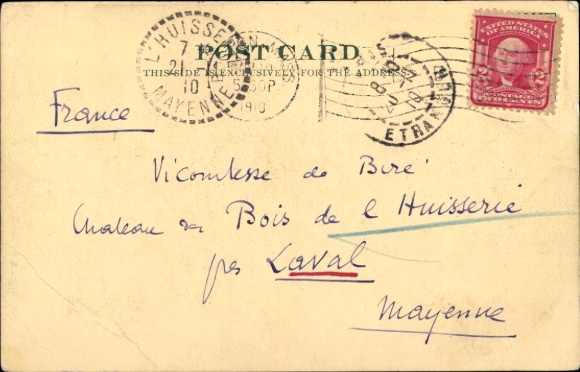 POST CARD
THIS SIDE IS EXCLUSIVELY FOR THE ADDRESS.
UNITED STATES
OF AMERICA
2 2
POSTAGE
TWO CENTS
L'HUISSERIE
7
21
10
MAYENNE
530P
1910
ETRANGER
France
Vicomtesse de Biré
Chateau du Bois de l'Huisserie
près Laval
Mayenne